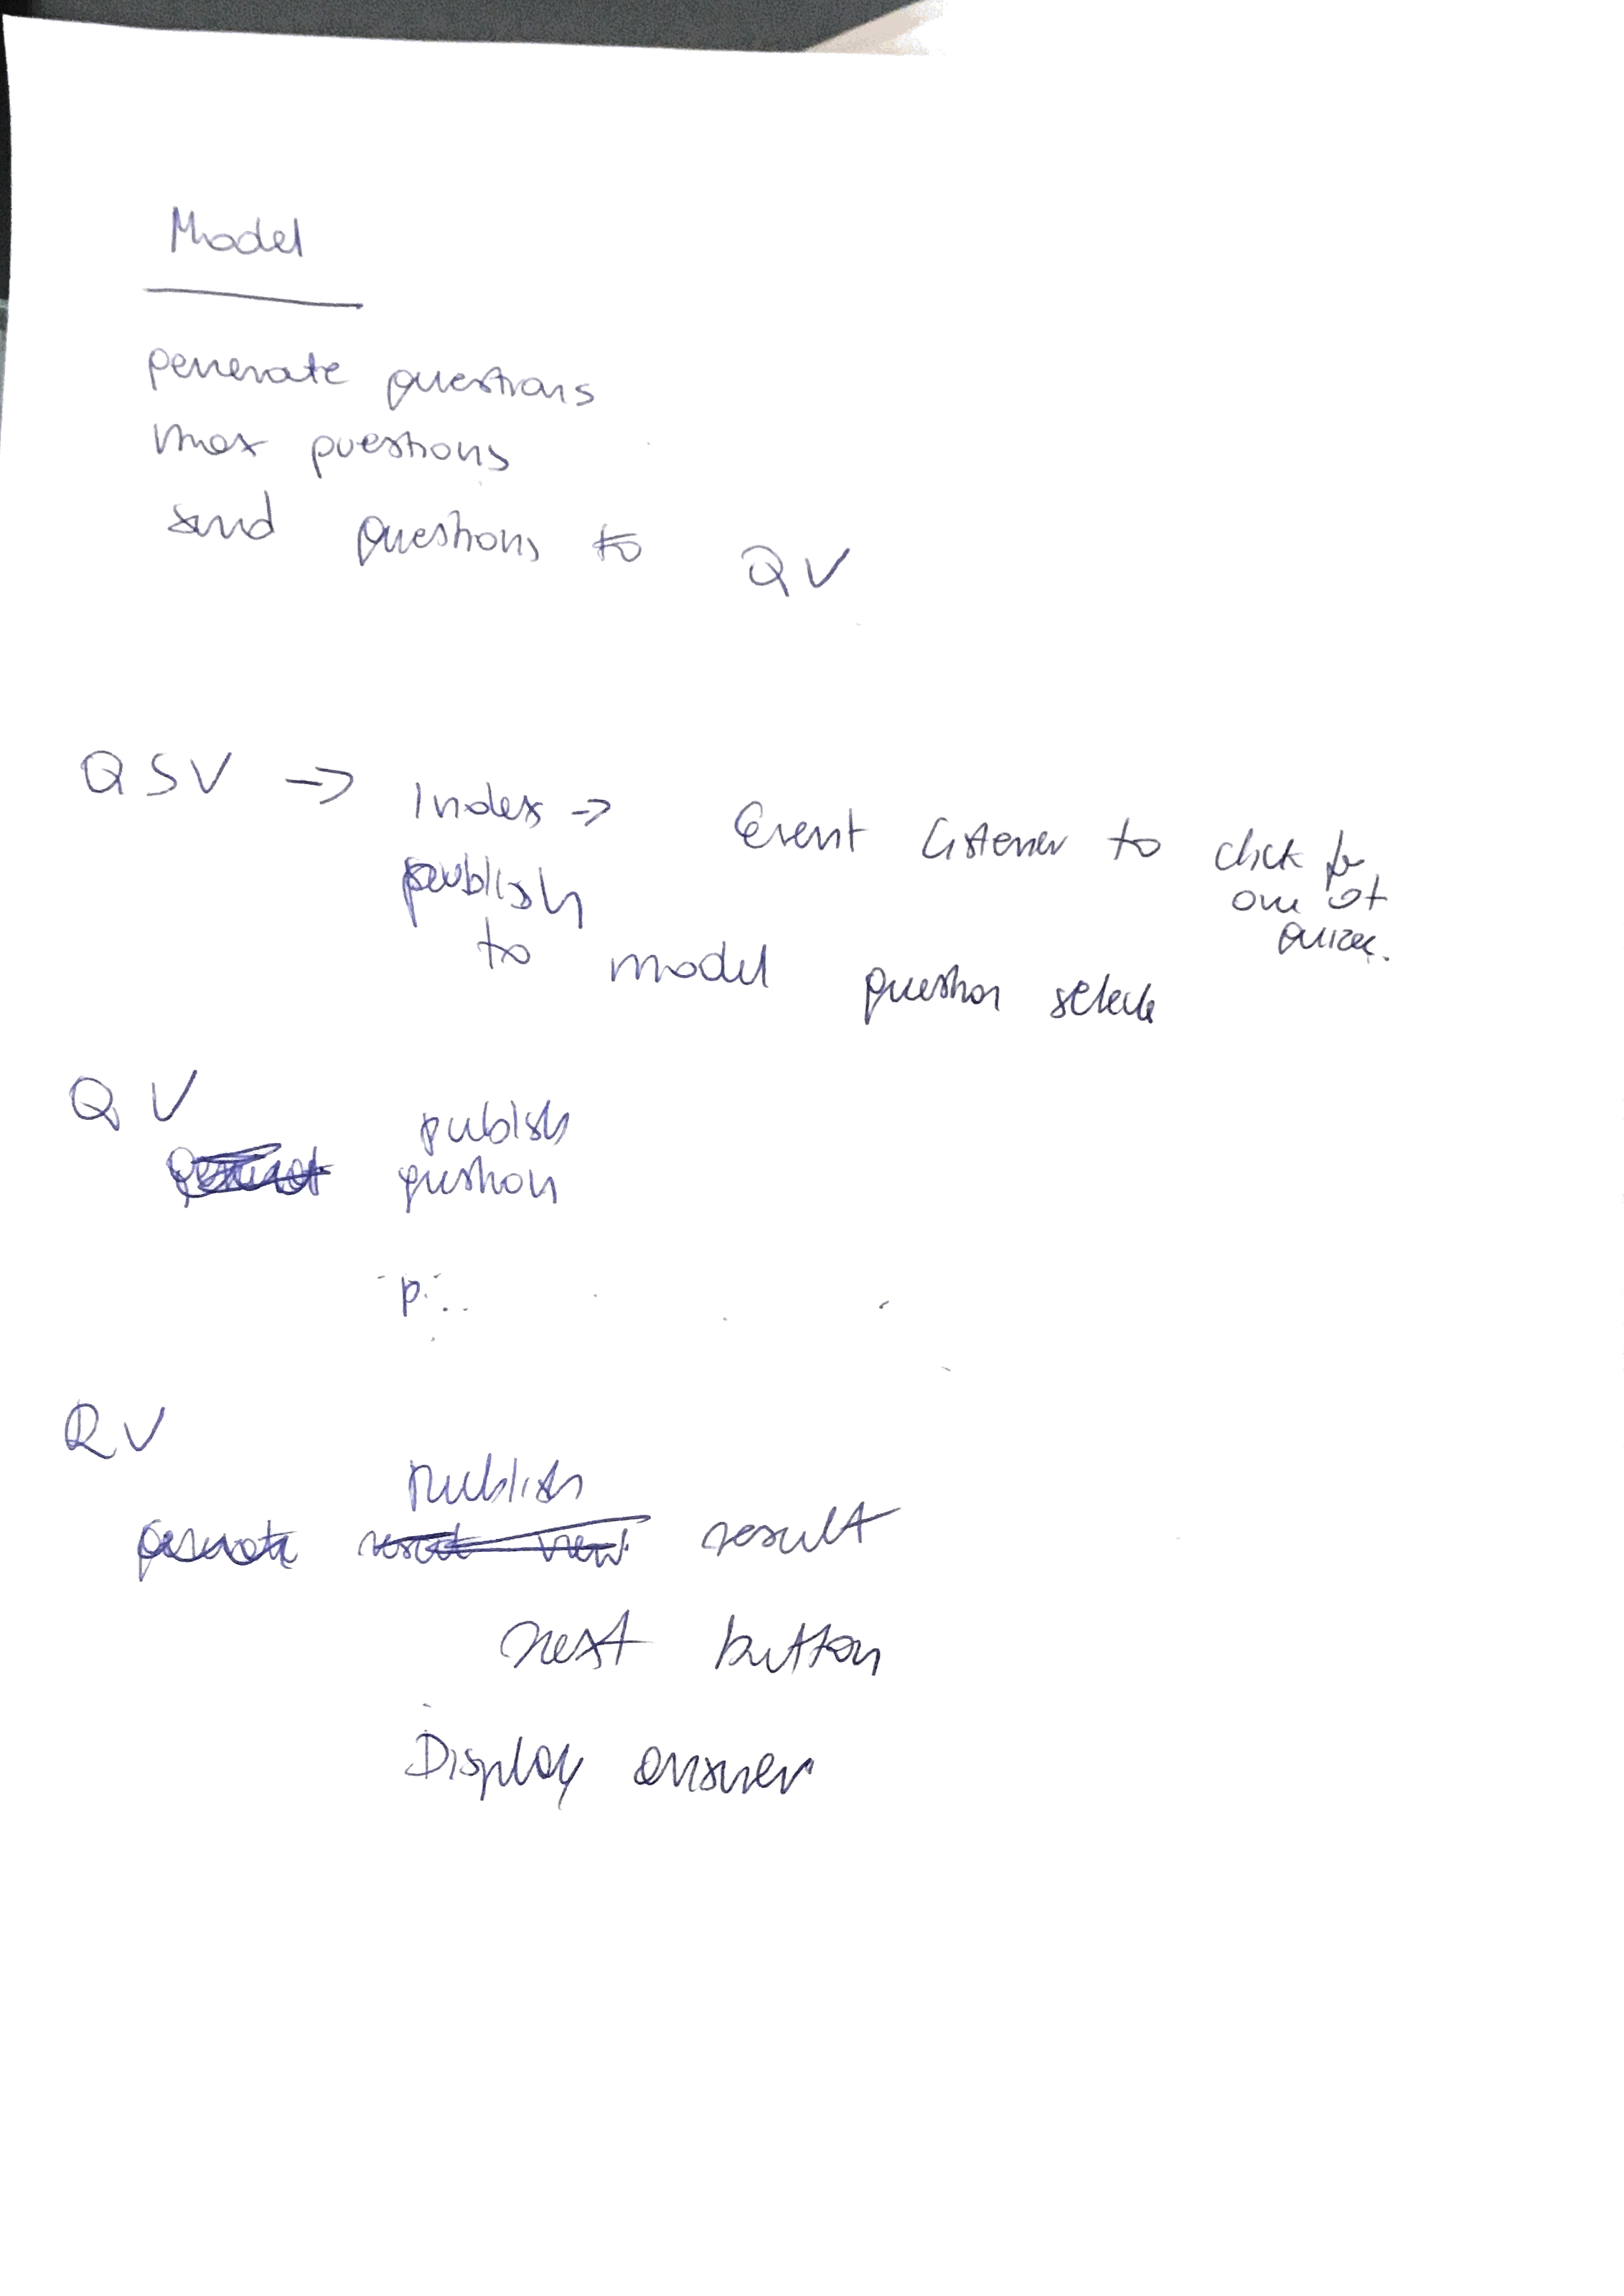 Model
generate questions
max questions
send questions to QV
QSV → Index → Event listener to click for
one of
quizec.
publish
to model question selecte
QV
publish
question
p
RV
publish
generate result view result
next button
Display answer